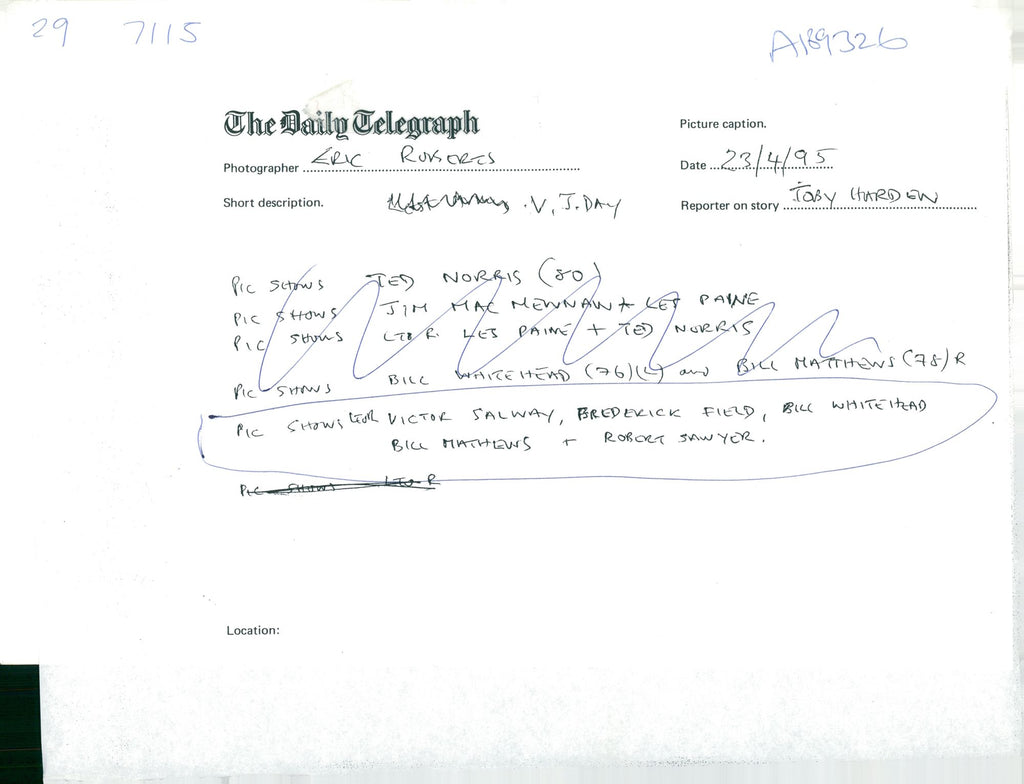 29 7115
A189326
The Daily Telegraph
Picture caption.
Photographer ERIC ROBERTS
Date 23/4/95
Short description. V.J. DAY
Reporter on story TOBY HARDEN
PIC SHOWS TED NORRIS (80)
PIC SHOWS JIM MAC MENNAN + LES PAINE
PIC SHOWS L TO R. LES PAINE + TED NORRIS
PIC SHOWS BILL WHITEHEAD (76)(L) and BILL MATTHEWS (78) R
PIC SHOWS L TO R VICTOR SALWAY, FREDERICK FIELD, BILL WHITEHEAD
BILL MATHEWS + ROBERT SAWYER.
PIC SHOWS L TO R
Location: